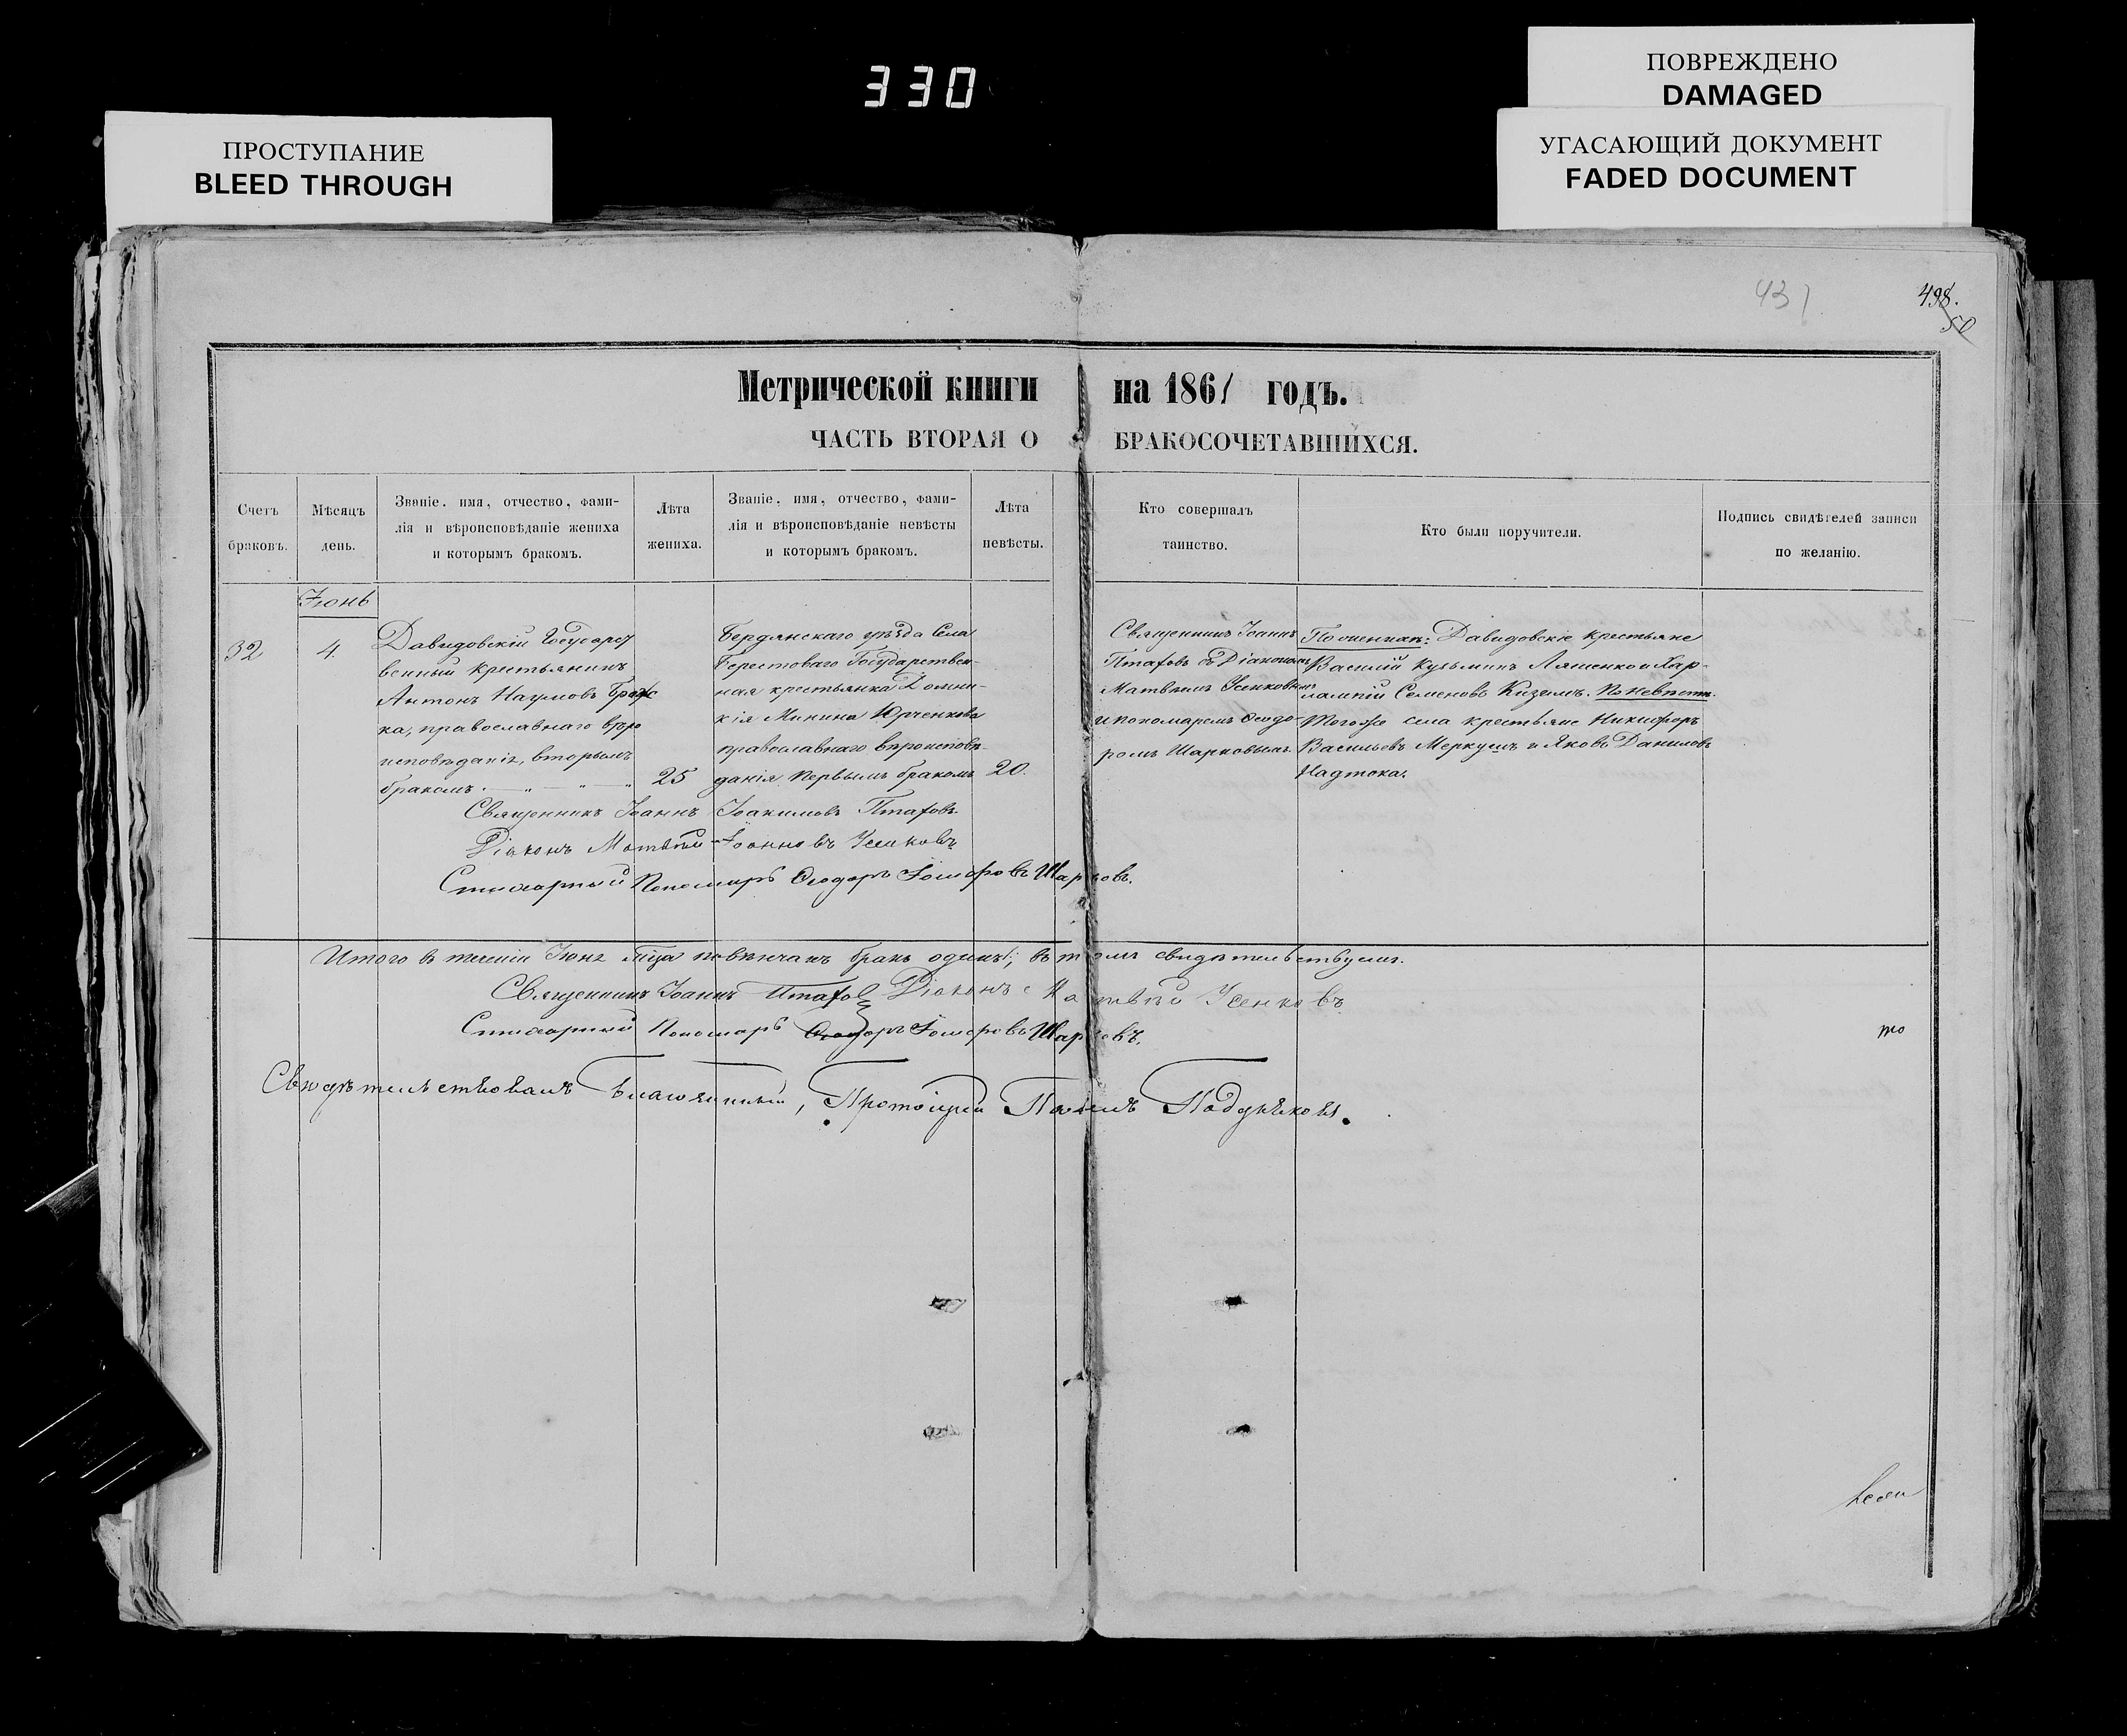 330
ПОВРЕЖДЕНО
DAMAGED
УГАСАЮЩИЙ ДОКУМЕНТ
FADED DOCUMENT
ПРОСТУПАНИЕ
BLEED THROUGH
431
498.
50
Метрической книги на 1861 годъ.
ЧАСТЬ ВТОРАЯ О БРАКОСОЧЕТАВШИХСЯ.
Счетъ
браковъ.
Мѣсяцъ
день.
Званіе, имя, отчество, фами-
лія и вѣроисповѣданіе жениха
и которымъ бракомъ.
Лѣта
жениха.
Званіе, имя, отчество, фами-
лія и вѣроисповѣданіе невѣсты
и которымъ бракомъ.
Лѣта
невѣсты.
Кто совершалъ
таинство.
Кто были поручители.
Подпись свидѣтелей записи
по желанію.
Іюнь
32
4.
Давидовскій Государст
венный крестьянинъ
Антонъ Наумовъ Браж
ка, православнаго вѣро
исповѣданія, вторымъ
бракомъ.
25
Бердянскаго уѣзда Села
Берестоваго Государствен-
ная крестьянка Домни-
кія Минина Юрченкова
православнаго вѣроисповѣ-
данія первымъ бракомъ
20.
Священникъ Іоаннъ
Птаховъ съ Діакономъ
Матвѣемъ Усенковымъ
и пономаремъ Ѳеодо-
ромъ Шарковымъ.
По женихѣ: Давидовскіе крестьяне
Василій Кузьминъ Ляшенко и Хар-
лампій Семеновъ Кизимъ. По невѣстѣ.
Тогоже села крестьяне Никифоръ
Васильевъ Меркушъ и Яковъ Даниловъ
Надтока.
Священникъ Іоаннъ Іоакимовъ Птаховъ.
Діаконъ Матвѣй Іоанновъ Усенковъ
Стихарный Пономарь Ѳеодоръ Шарковъ.
Итого въ теченіи Іюня мѣсяца повѣнчанъ бракъ одинъ 1; въ томъ свидѣтельствуемъ.
Священникъ Іоаннъ Птаховъ Діаконъ Матвѣй Усенковъ
Стихарный Пономарь Ѳеодоръ Шарковъ.
то
Свидѣтельствовалъ Благочинный, Протоіерей Павелъ